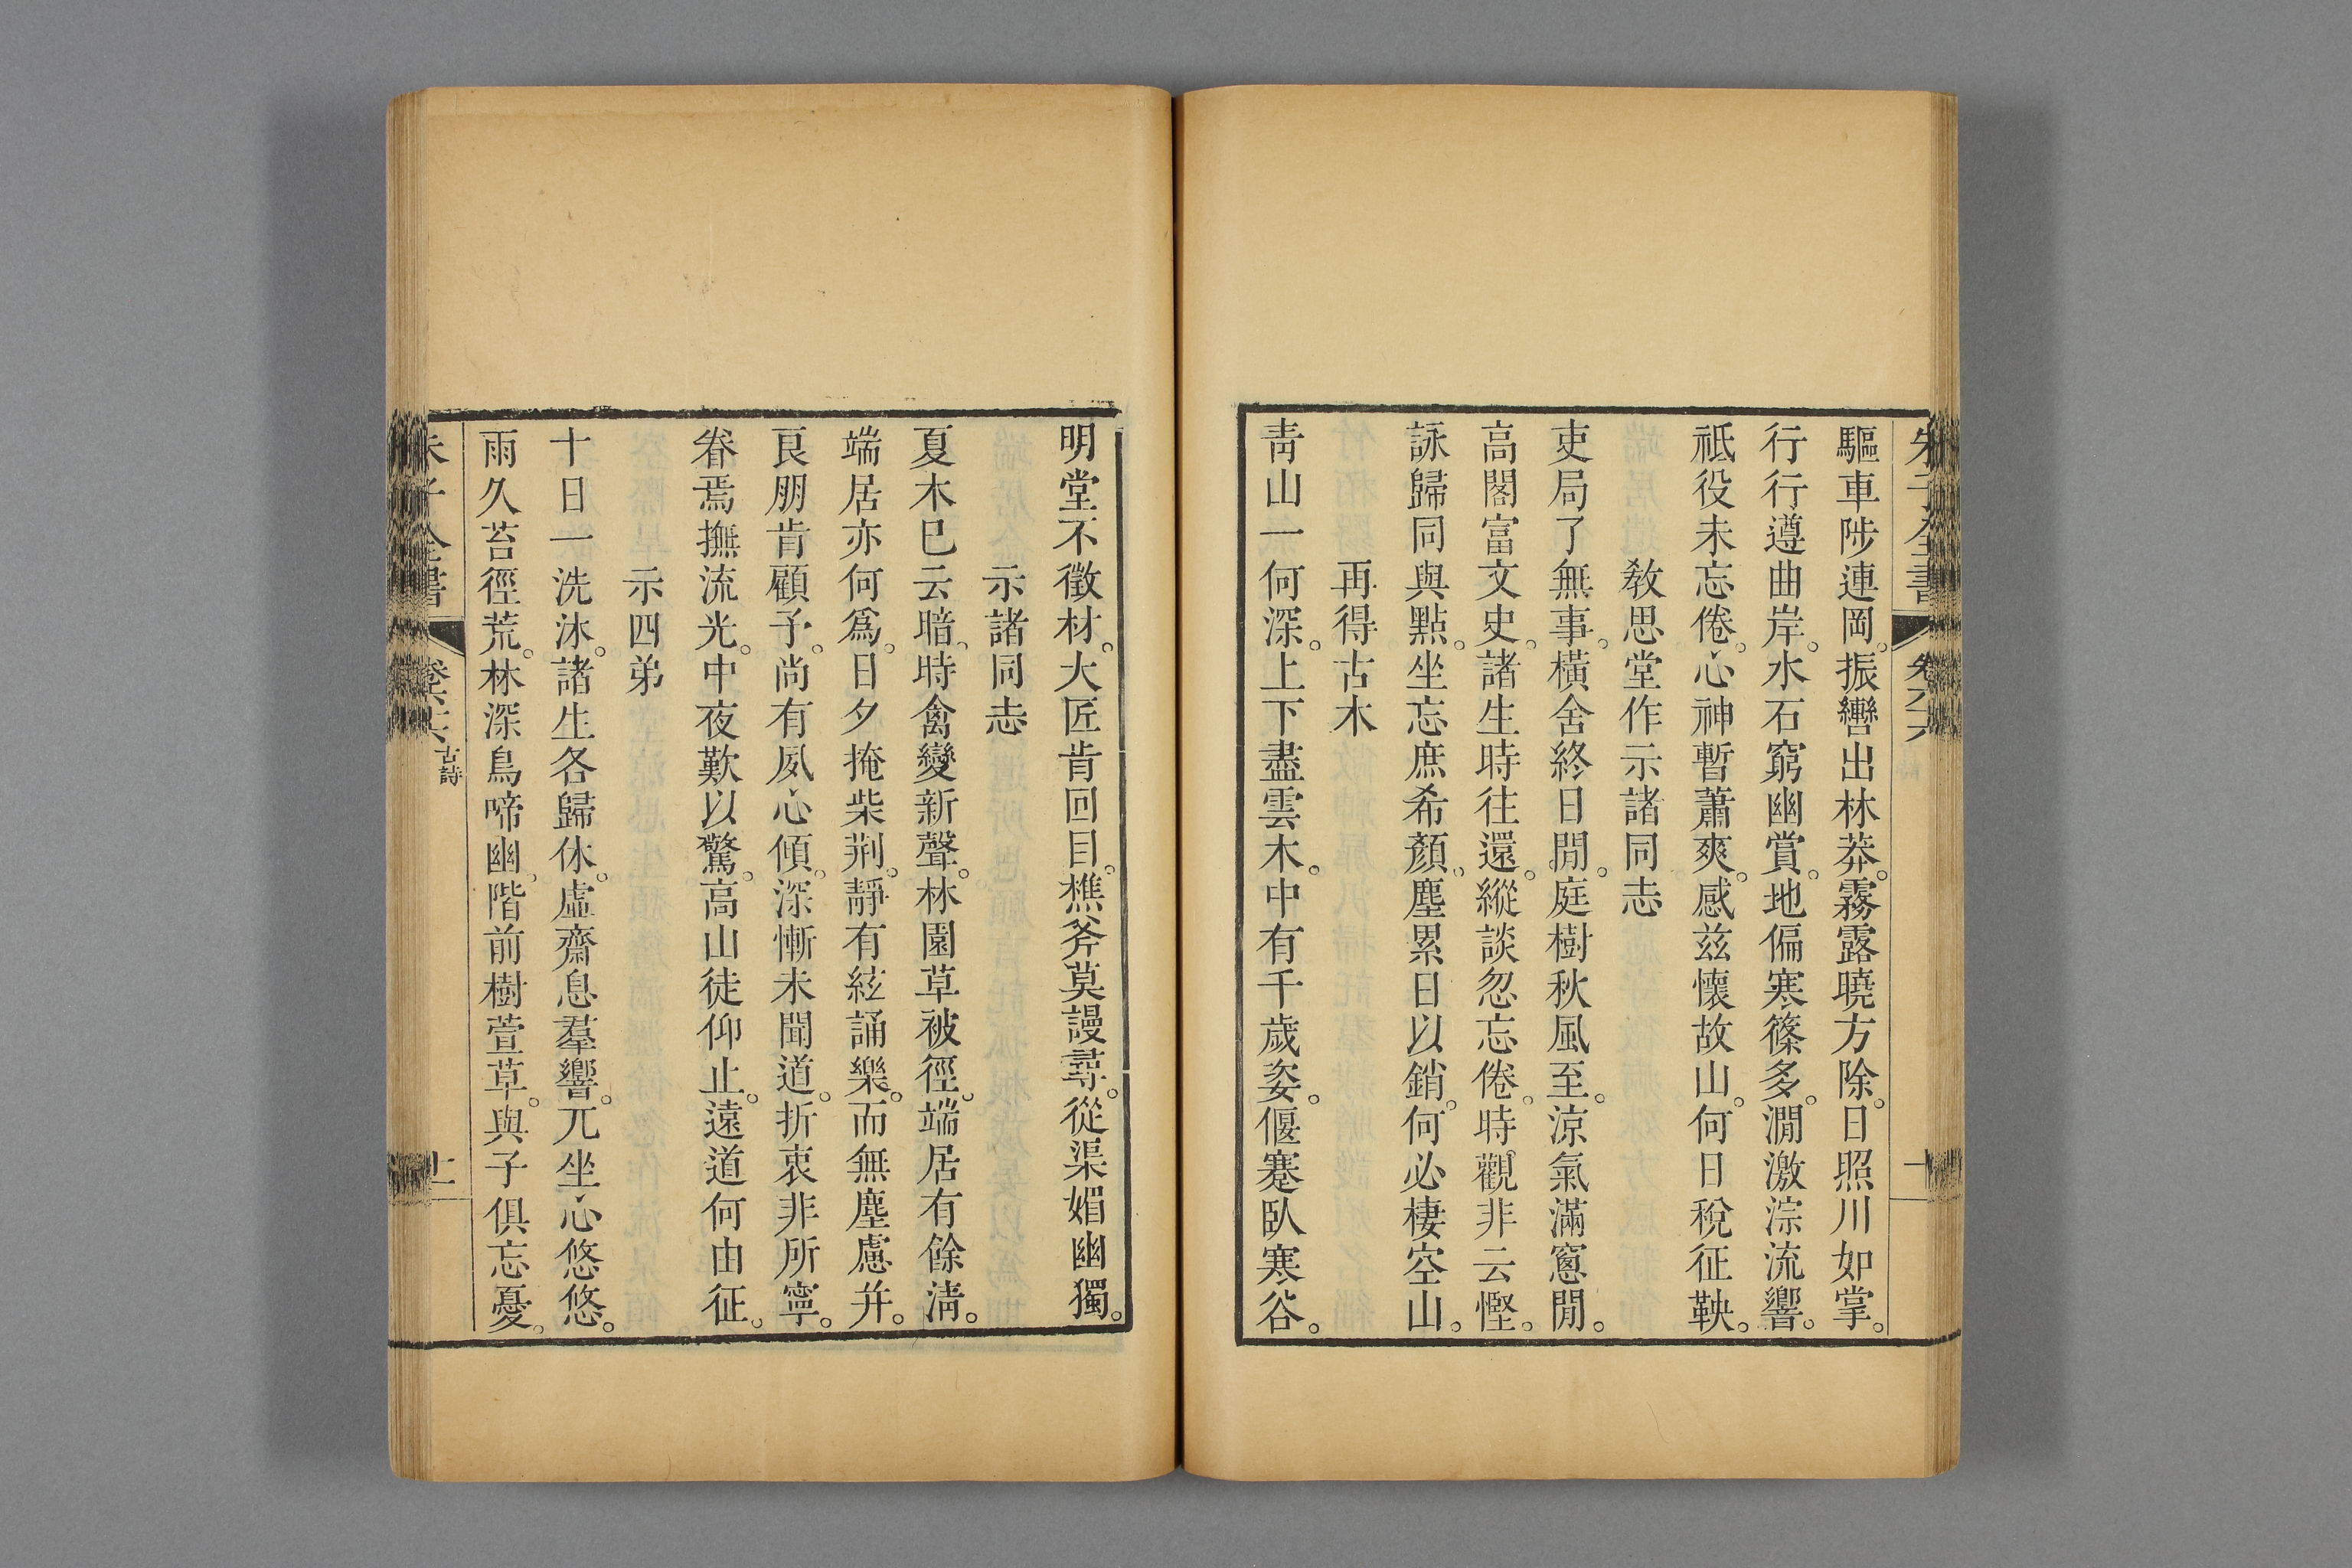 朱子全書　卷六六　十
驅車陟連岡。振轡出林莽。霧露曉方除。日照川如掌。
行行遵曲岸。水石窮幽賞。地偏寒篠多。澗激淙流響。
祗役未忘倦。心神暫蕭爽。感茲懷故山。何日稅征鞅。
教思堂作示諸同志
吏局了無事。橫舍終日閒。庭樹秋風至。涼氣滿窻閒。
高閣富文史。諸生時往還。縱談忽忘倦。時觀非云慳。
詠歸同與點。坐忘庶希顏。塵累日以銷。何必棲空山。
再得古木
靑山一何深。上下盡雲木。中有千歲姿。偃蹇臥寒谷。
明堂不徵材。大匠肯回目。樵斧莫謾尋。從渠媚幽獨。
示諸同志
夏木巳云暗。時禽變新聲。林園草被徑。端居有餘淸。
端居亦何爲。日夕掩柴荆。靜有絃誦樂。而無塵慮并。
良朋肯顧予。尚有夙心傾。深慚未聞道。折衷非所寧。
眷焉撫流光。中夜歎以驚。高山徒仰止。遠道何由征。
示四弟
十日一洗沐。諸生各歸休。虛齋息羣響。兀坐心悠悠。
雨久苔徑荒。林深鳥啼幽。階前樹萱草。與子俱忘憂。
朱子全書　卷六六　古詩　十一